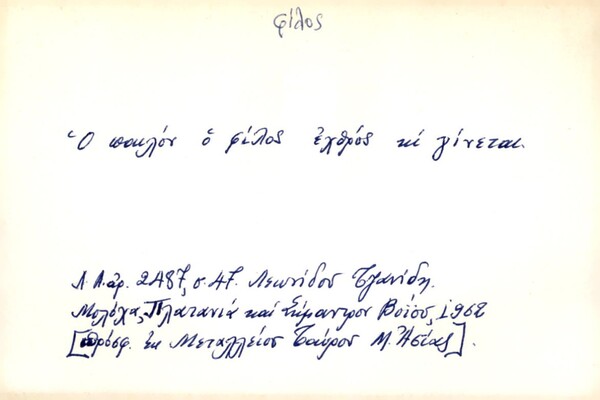 φίλος
Ὁ παλλὸν ὁ φίλος ἐχθρός κί γίνεται.
Λ.Λ.ἀρ. 2487, σ. 47. Λεωνίδου Τζανίδη.
Μολόχα, Πλατανιά καί Σήμαντρον Βοΐου, 1962
[πρόσφ. ἐκ Μεταλλείου Ταύρου Μ. Ἀσίας].